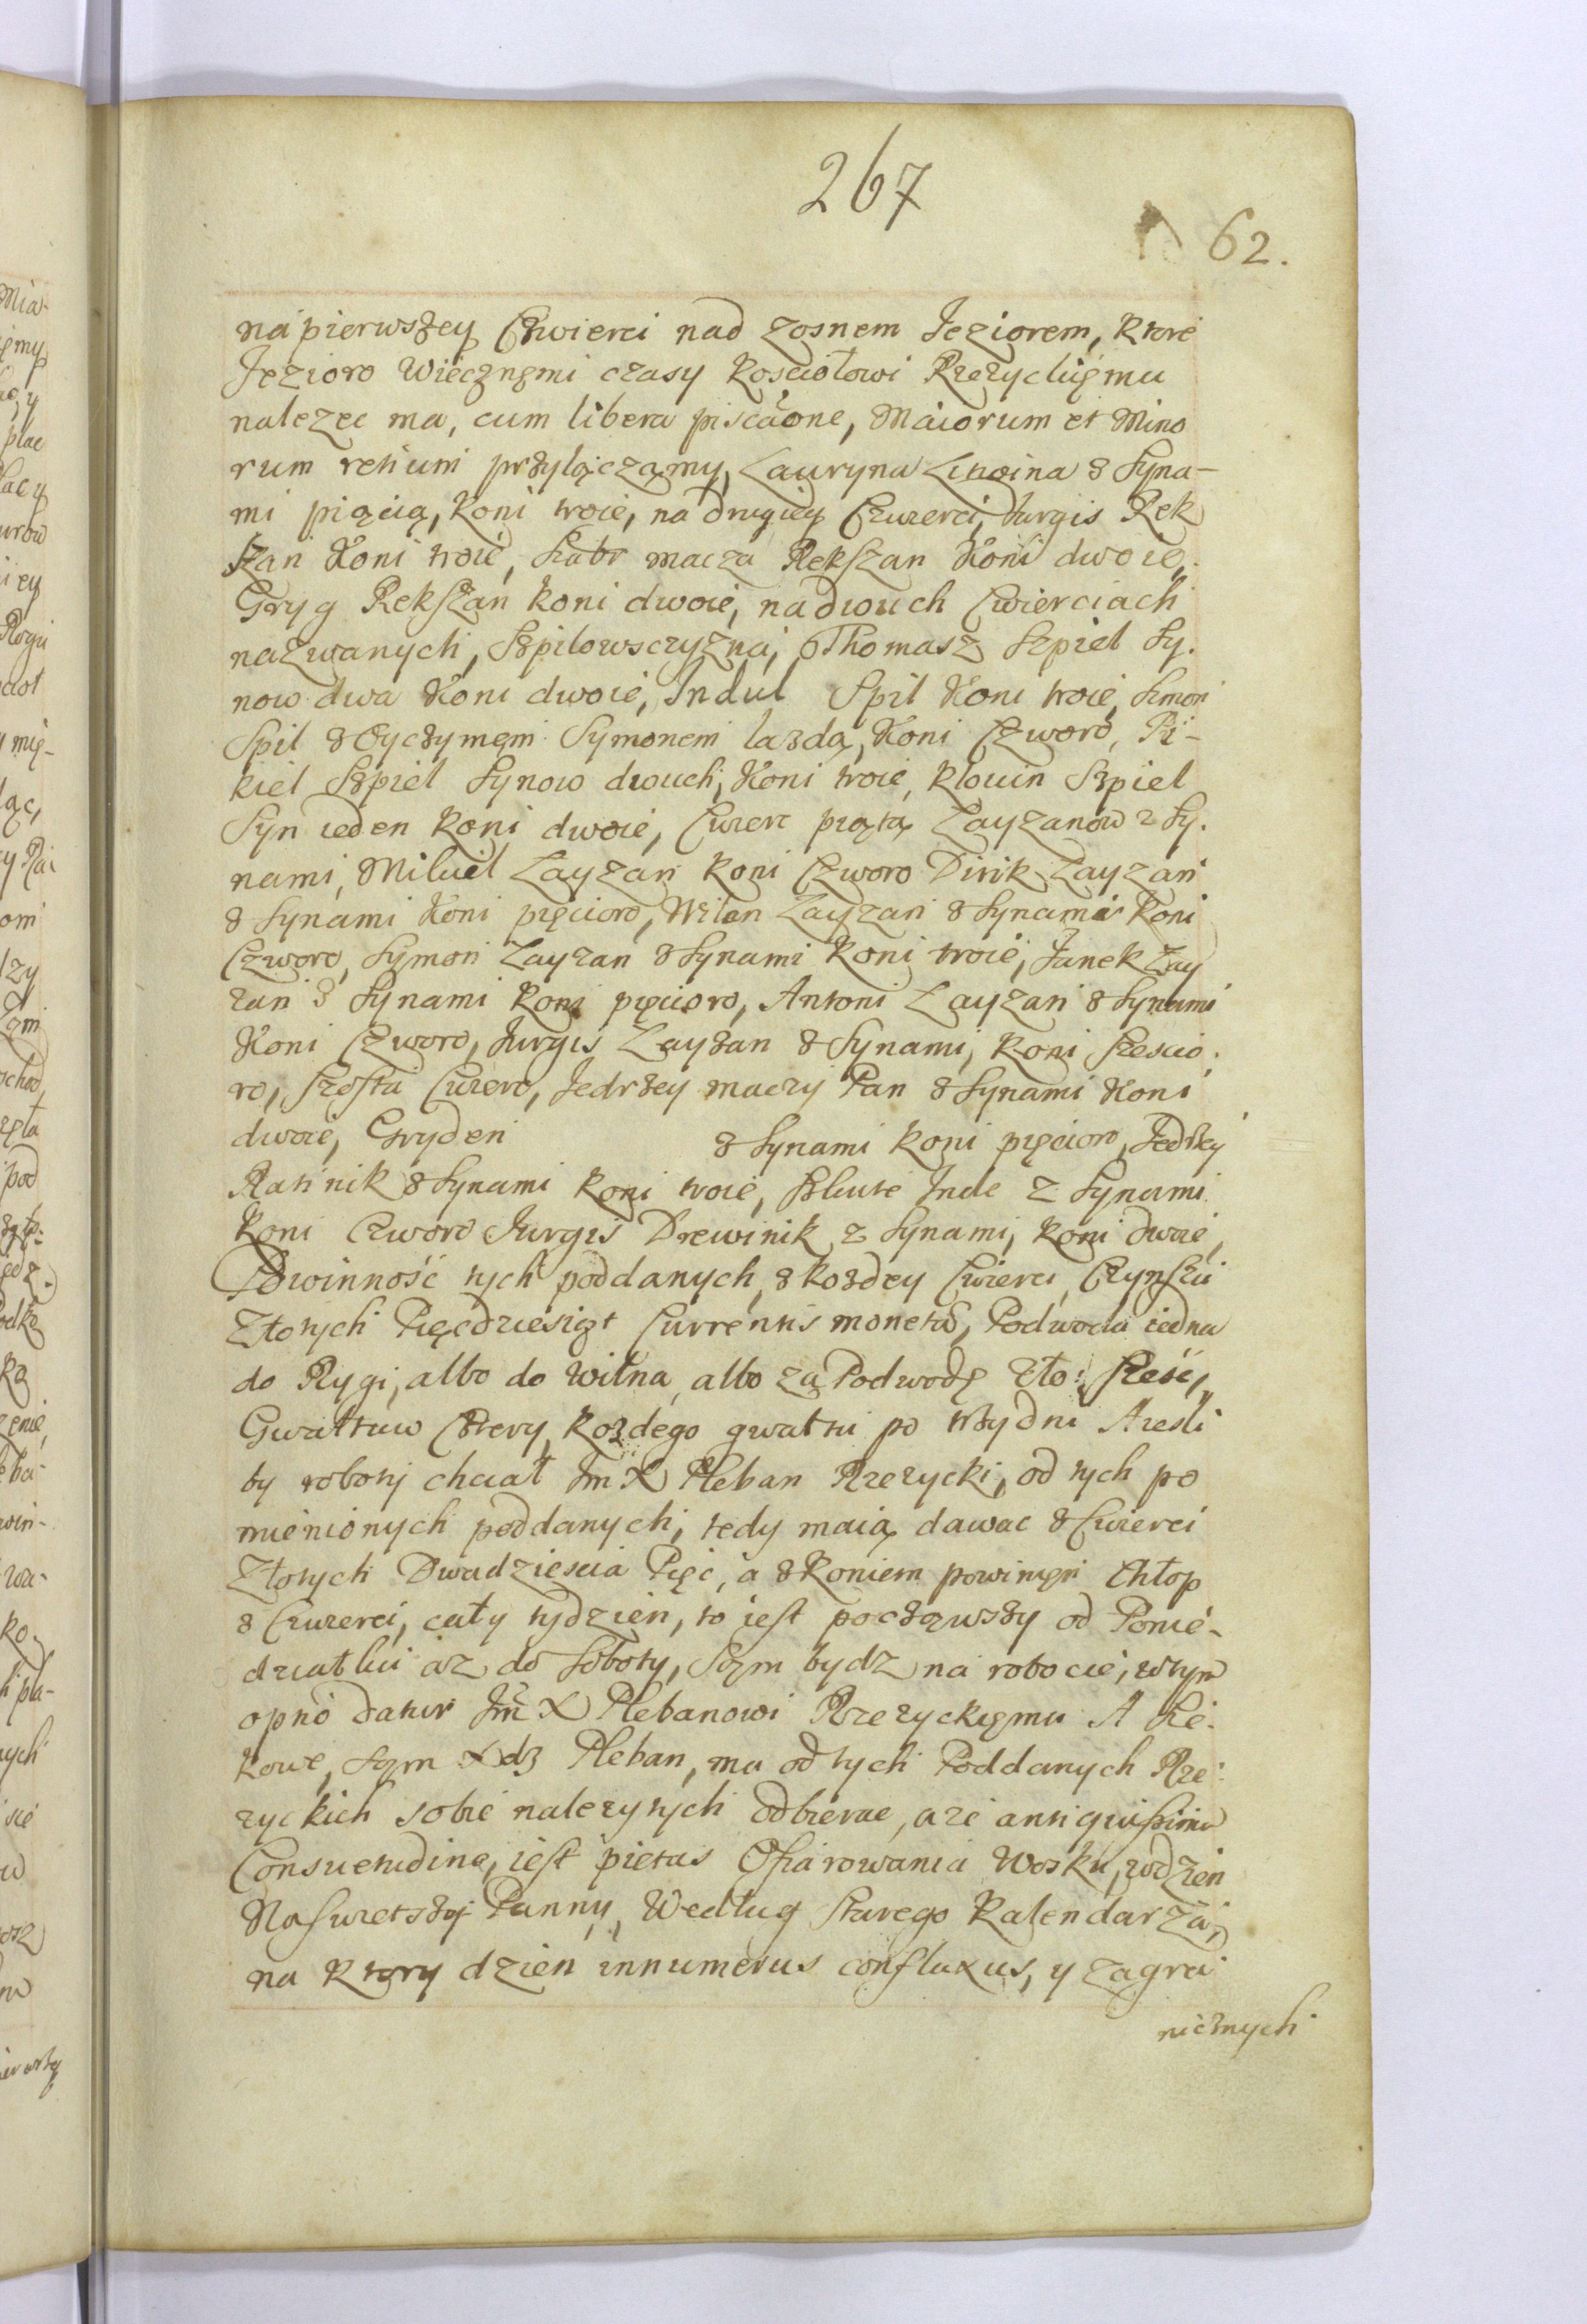 267
62.
na pierwszey Czwierci nad zosnem Jeziorem, ktore
Jezioro Wiecznęmi czasy Kosciołowi Rzezyckięmu
nalezec ma, cum libera piscãone, Maiorum et Mino
rum retium przyłączamy, Lauryna Litwina z Syna-
mi piącią, Koni troie, na drugiey Czwierci, Jurgis Rek
szan Koni troie, Kabr macza Rekszan Koni dwoie,
Gryg Rekszan koni dwoie, na dwuch Cwierciach
nazwanych, Szpilowsczyzna, Thomasz Szpiel Sy.
now dwa Koni dwoie, Indul Spil Koni troie, Simon
Spil z Oyczymęm Symonem lazdą, Koni Czworo, Pi-
kiel Szpiel Synow dwuch, Koni troie, Klowin Szpiel
Syn ieden koni dwoie, Cwierc piąta Zayzanow z Sy.
nami, Mikiel Zayzan koni Czworo Dirik Zayzan
z Synami Koni pięcioro, Wilen Zayzan z Synami Koni
Czworo, Symon Zayzan z Synami koni troie, Janek Zay
zan z Synami koni pięcioro, Antoni Zayzan z Synami
Koni Czworo, Jurgis Zayzan z Synami, koni szescio.
ro, szosta Cwierc, Jedrzey maczy Pan z Synami Koni
dwoie, Gryden z Synami koni pięcioro, Jedrzey
Ratinik z Synami koni troie, Inde z Synami
koni Czworo Jurgis Drewinik z Synami, koni dwoie,
Powinność tych poddanych, z kozdey Cwierci, Czynszu
Złotych Pięcdziesiąt Currentis moneta, Podwoda iedna
do Rygi, albo do Wilna, albo za Podwodę Zło: szesc,
Gwałtuw Cztery, kozdego gwałtu po trzy dni A iesli
by roboty chciał Jm X Pleban Rzezycki, od tych po
mienionych poddanych, tedy maią dawac z Cwierci
Złotych Dwadziescia Pięć, a z Koniem powinięn Chłop
z Czwierci, cały tydzien, to iest począwszy od Ponie-
działku az do Soboty, Sam bydz na robocie, w tym
opñio datur Jm̃ X Plebanowi Rzezyckięmu A Ke-
kowe, Sam Xdz Pleban, ma od tych Poddanych Rze-
zyckich sobie nalezytych odbierac, a ze antiquissima
Consuetudine, iest pietas Ofiarowania Wosku, w dzien
Naswietszej Panny, Według starego Kalendarza,
na ktory dzien innumerus confluxus, y zagra
nicznych